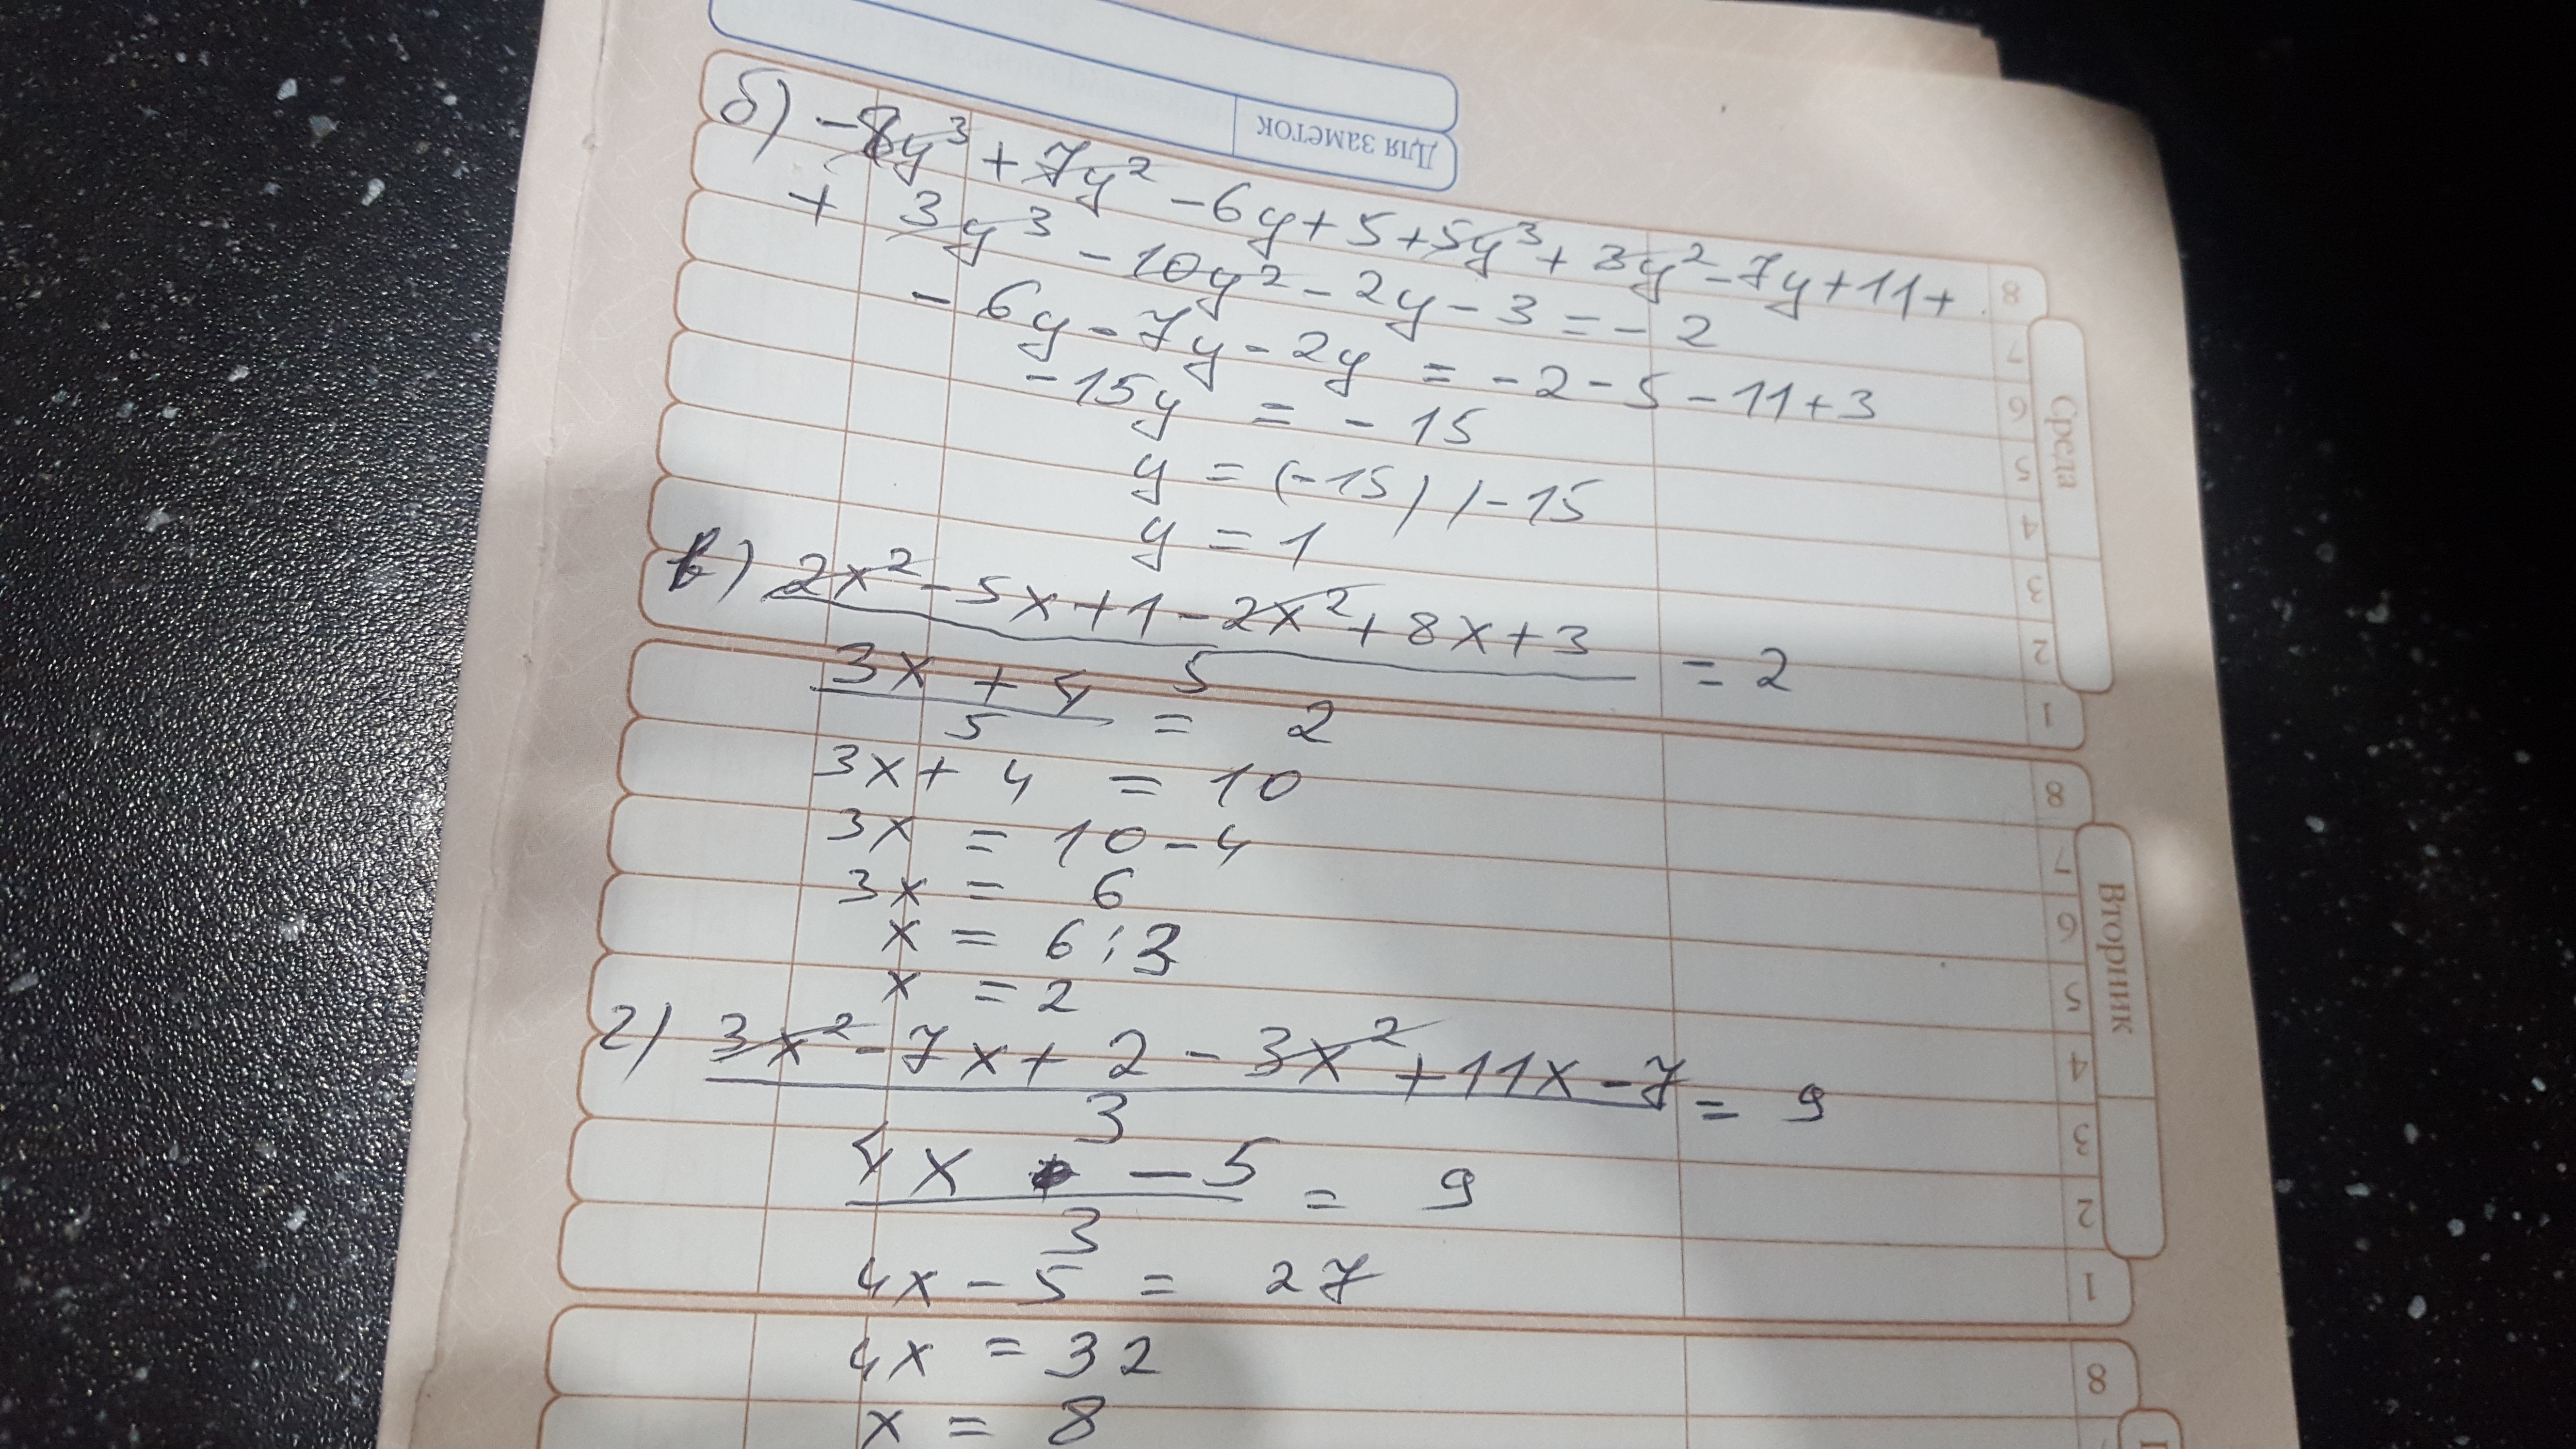 Для заметок
б) -8y³ + 7y² - 6y + 5 + 5y³ + 3y² - 7y + 11 +
+ 3y³ - 10y² - 2y - 3 = - 2
- 6y - 7y - 2y = - 2 - 5 - 11 + 3
-15y = - 15
y = (-15) / -15
y = 1
в) 2x² - 5x + 1 - 2x² + 8x + 3 = 2
5
3x + 4 = 2
5
3x + 4 = 10
3x = 10 - 4
3x = 6
x = 6 : 3
x = 2
г) 3x² - 7x + 2 - 3x² + 11x - 7 = 9
3
4x - 5 = 9
3
4x - 5 = 27
4x = 32
x = 8
Среда
8
7
6
5
4
3
2
1
Вторник
8
7
6
5
4
3
2
1
8